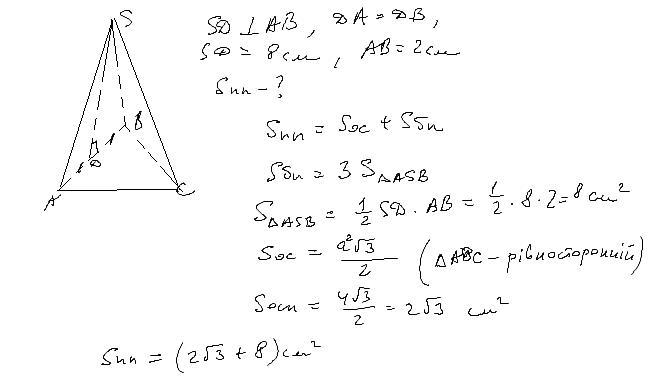 S
B
D
A
C
SD ⊥ AB, DA = DB,
SD = 8 см, AB = 2 см
Sпп - ?
Sпп = Sос + Sбп
Sбп = 3 S△ASB
S△ASB = 1/2 SD · AB = 1/2 · 8 · 2 = 8 см²
Sос = a²√3/2 (△ABC - рівносторонній)
Sосн = 4√3/2 = 2√3 см²
Sпп = (2√3 + 8) см²